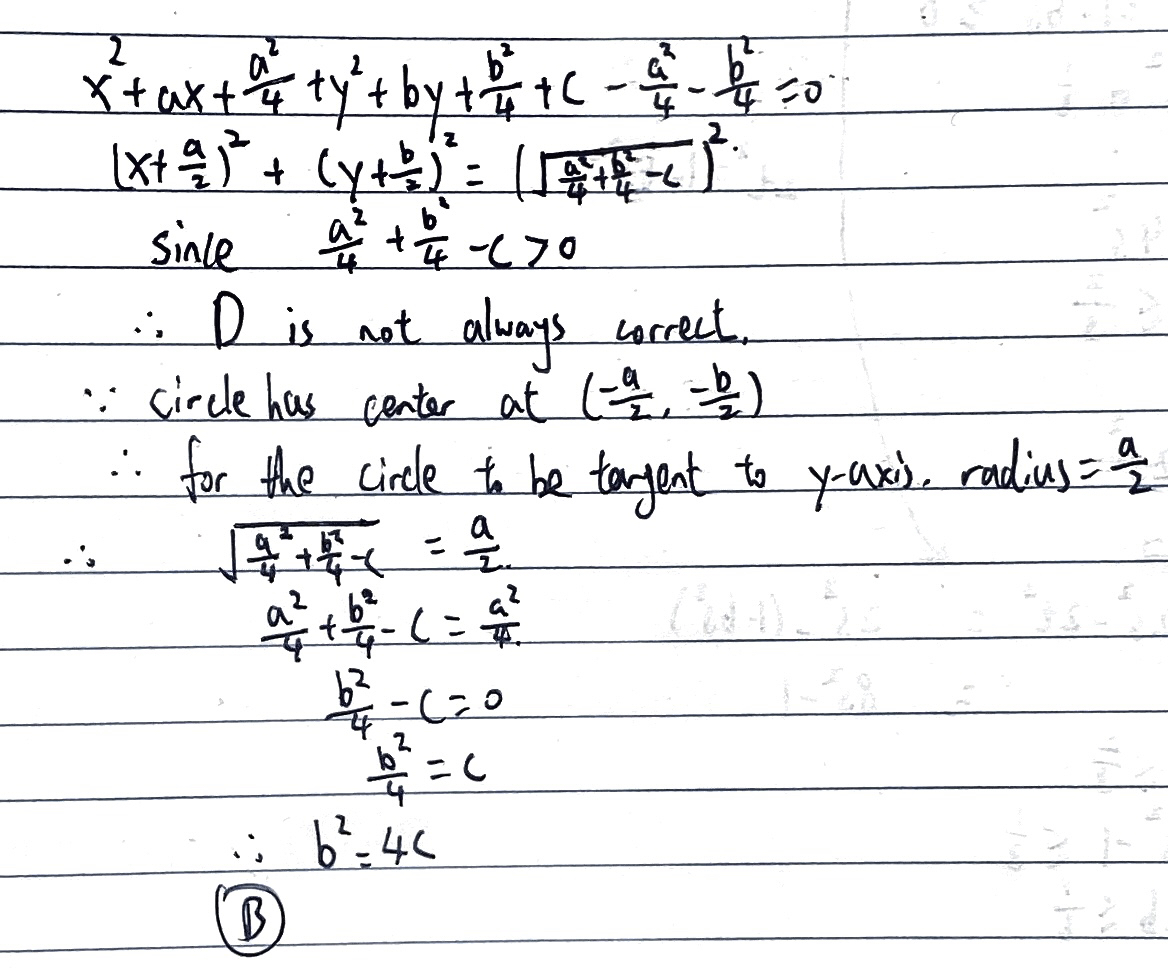 x² + ax + a²/4 + y² + by + b²/4 + c - a²/4 - b²/4 = 0
(x + a/2)² + (y + b/2)² = (√(a²/4 + b²/4 - c))².
since a²/4 + b²/4 - c > 0
∴ D is not always correct.
∵ circle has center at (-a/2, -b/2)
∴ for the circle to be tangent to y-axis. radius = a/2
∴ √(a²/4 + b²/4 - c) = a/2.
a²/4 + b²/4 - c = a²/4.
b²/4 - c = 0
b²/4 = c
∴ b² = 4c
B